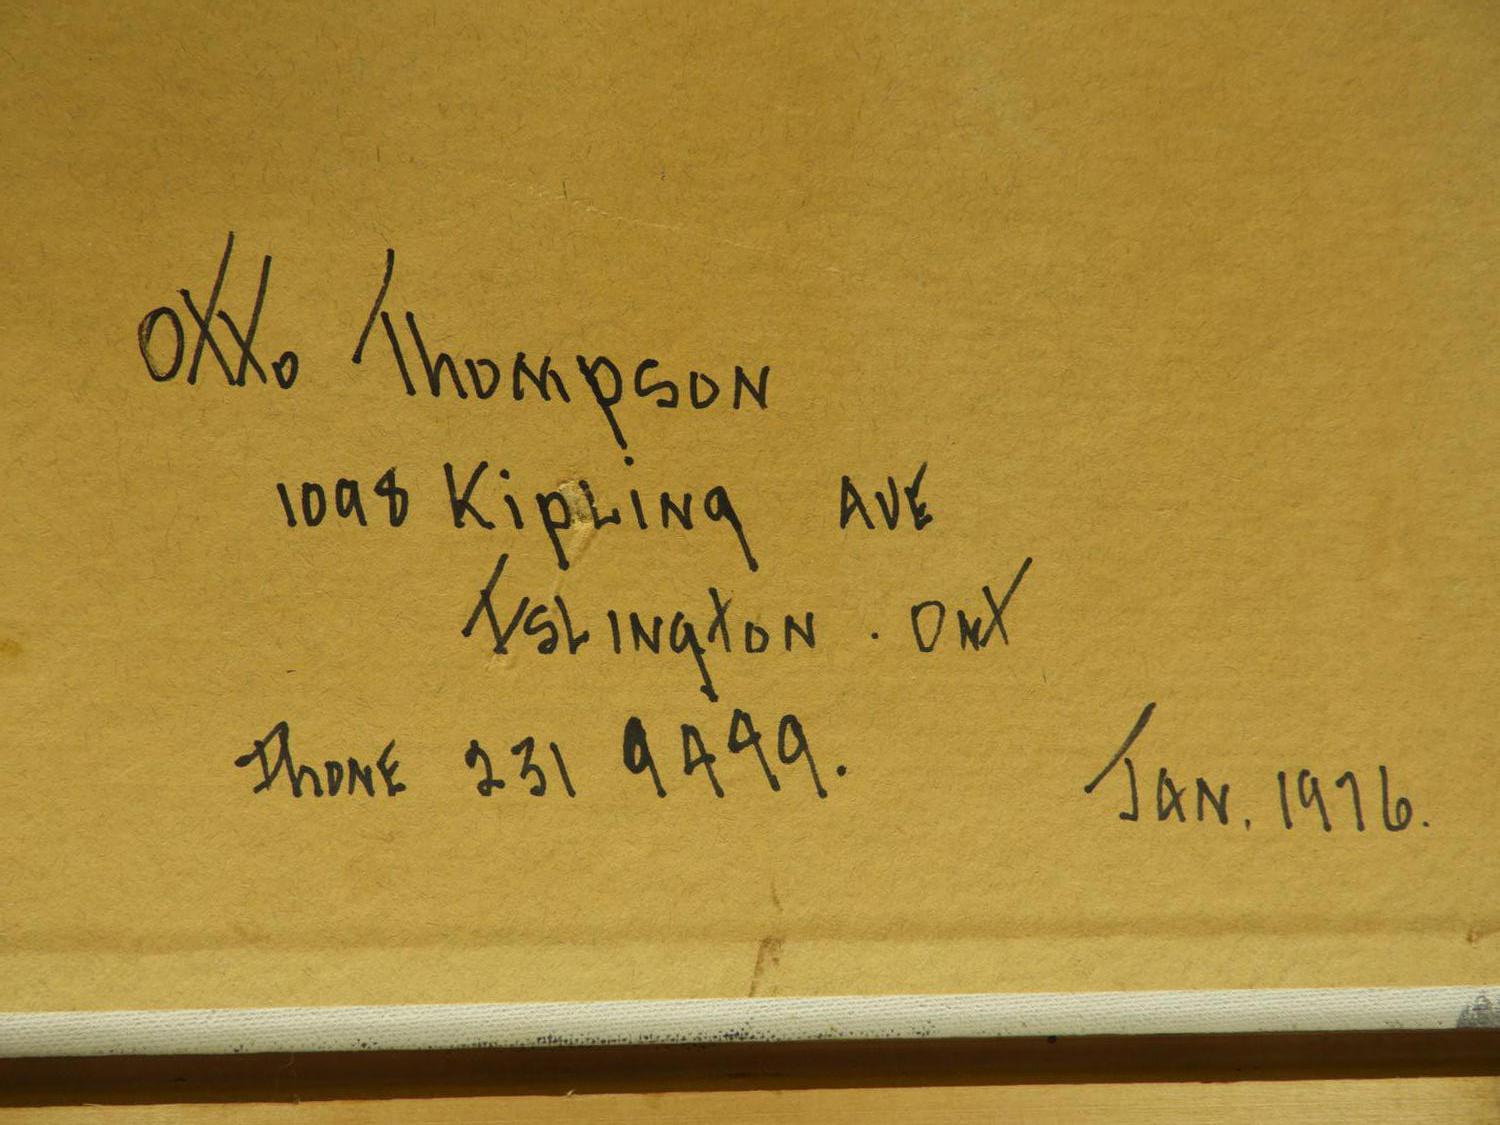 Otto Thompson
1098 Kipling AVE
Islington. Ont
Phone 231 9499.
Jan. 1976.